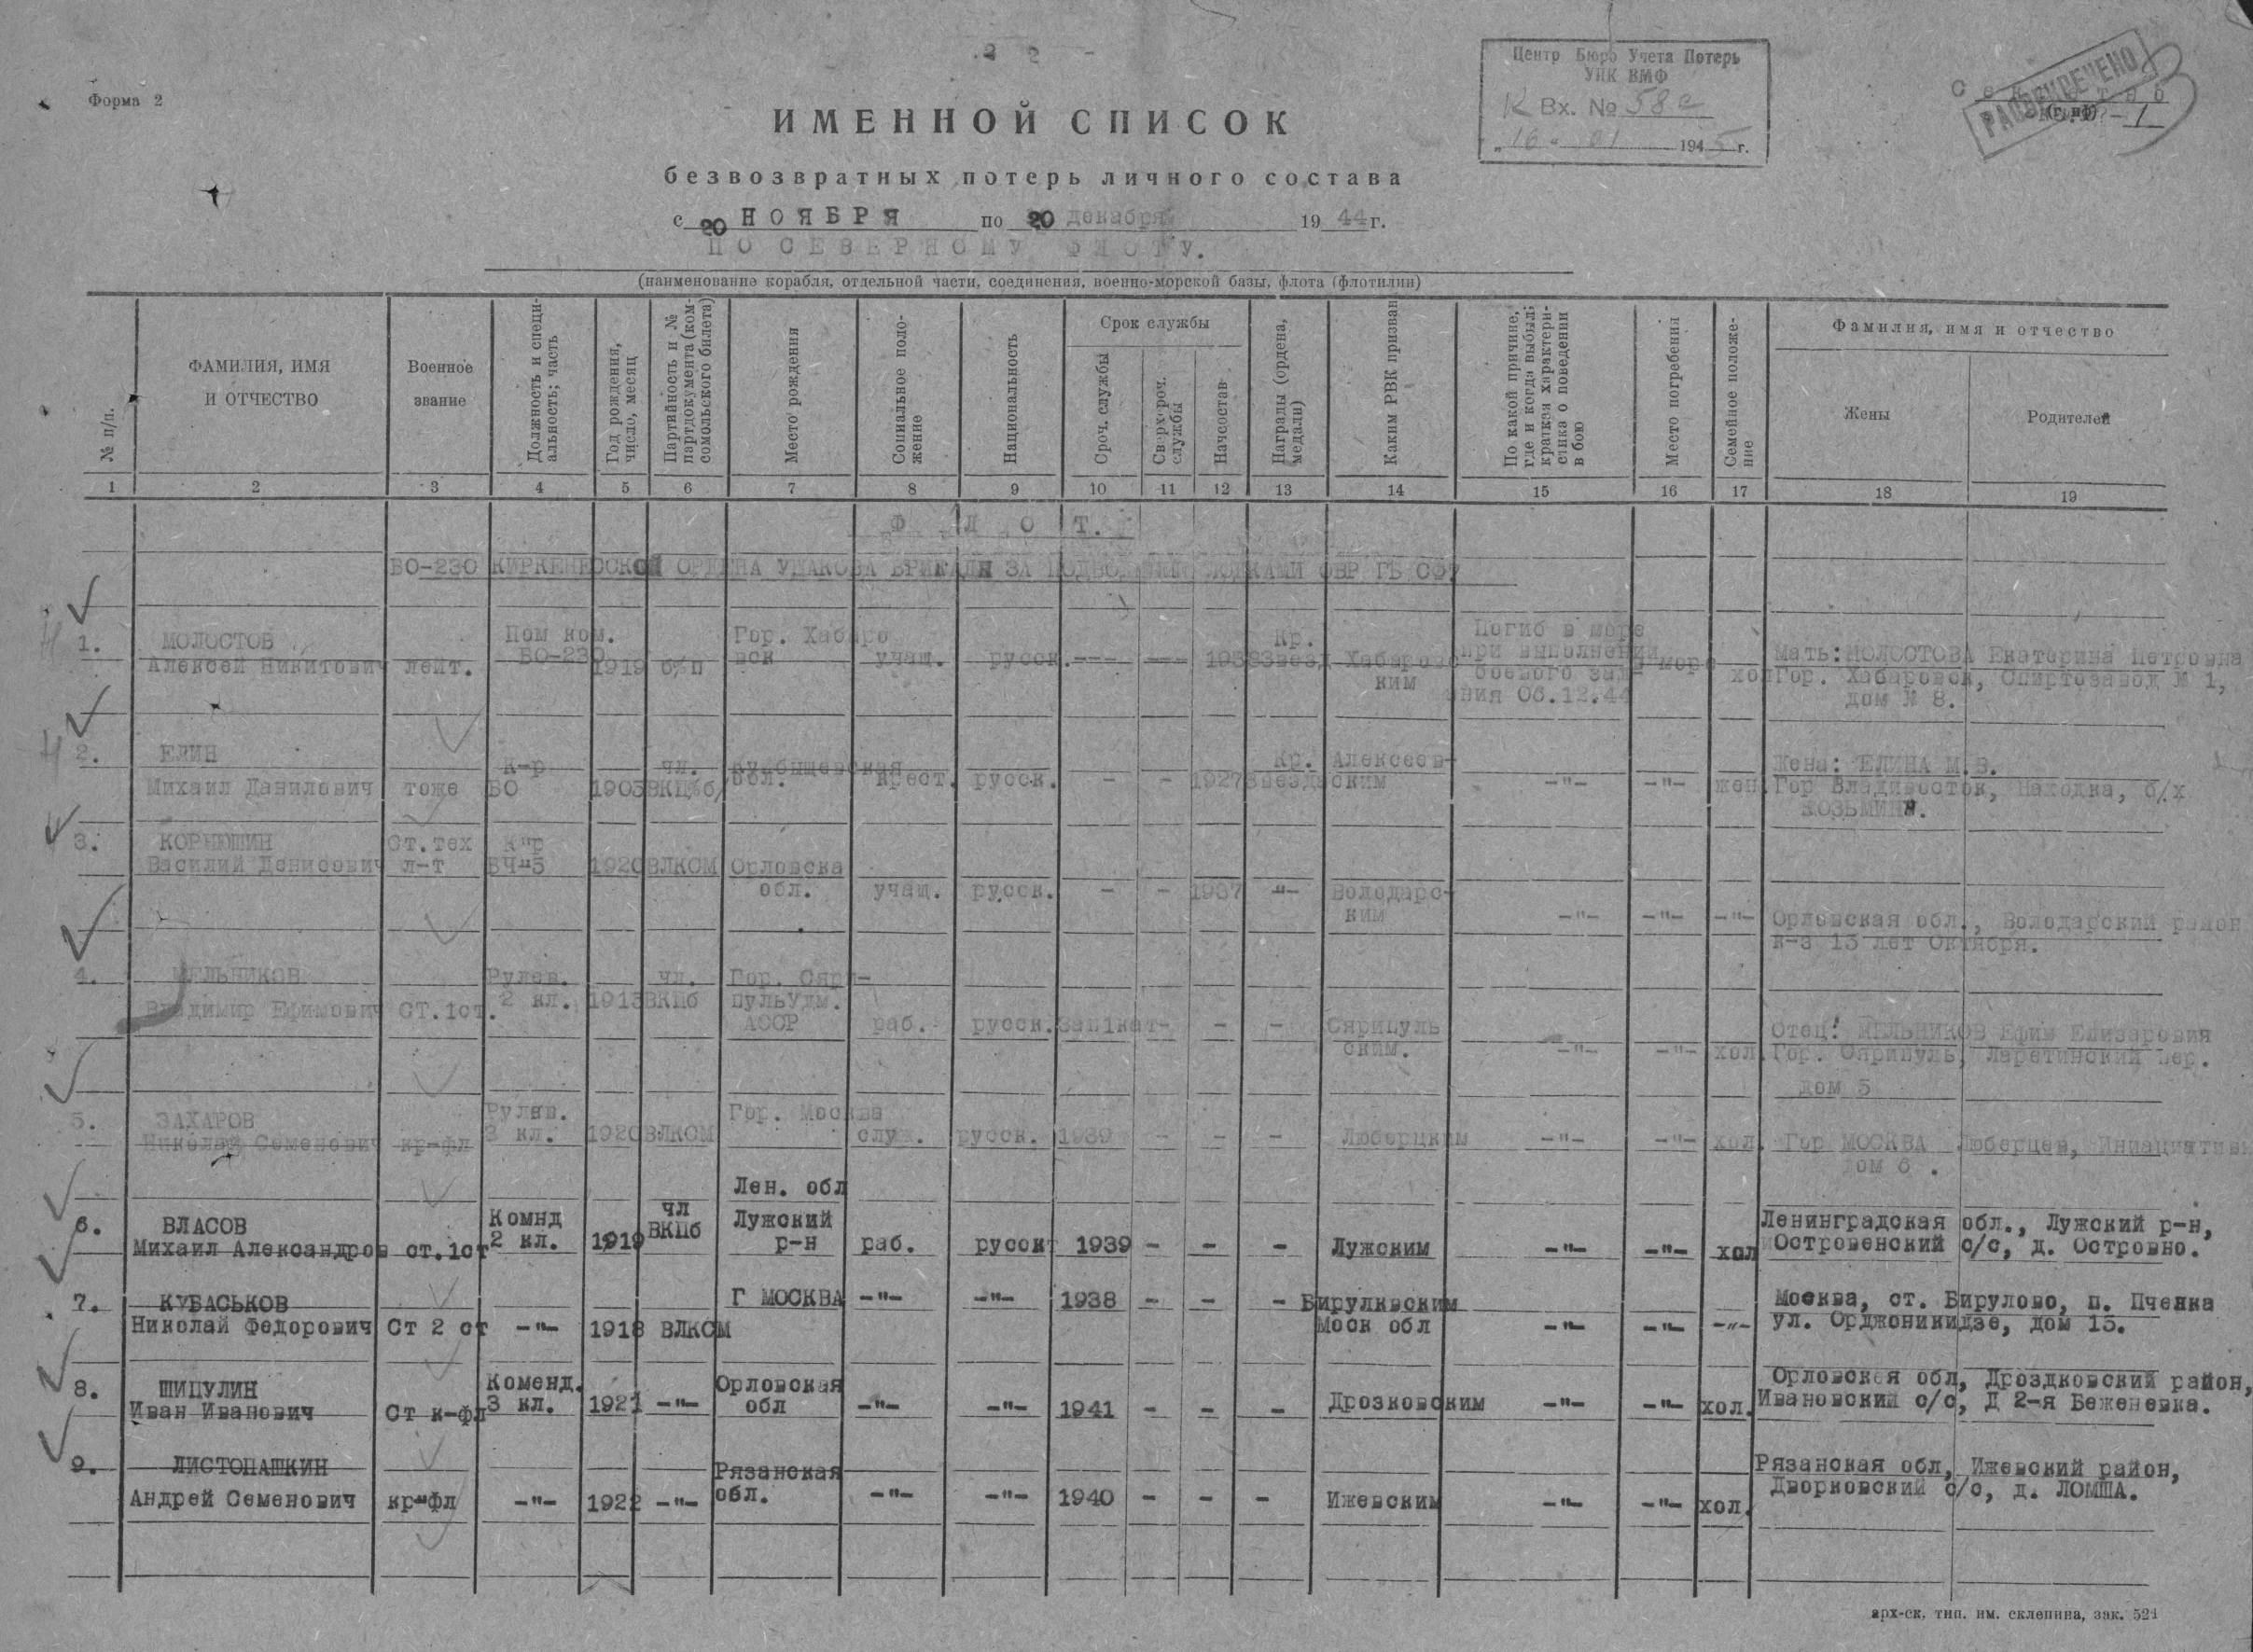 Форма 2
Центр Бюро Учета Потерь
УПК ВМФ
К Вх. № 58с
„16“ 01 1945 г.
РАССЕКРЕЧЕНО
ИМЕННОЙ СПИСОК
безвозвратных потерь личного состава
с 20 НОЯБРЯ по 20 декабря 1944 г.
ПО СЕВЕРНОМУ ФЛОТУ.
(наименование корабля, отдельной части, соединения, военно-морской базы, флота (флотилии)
№ п/п.
ФАМИЛИЯ, ИМЯ
И ОТЧЕСТВО
Военное
звание
Должность и специ-
альность; часть
Год рождения,
число, месяц
Партийность и №
партдокумента (ком-
сомольского билета)
Место рождения
Социальное поло-
жение
Национальность
Срок службы
Сроч. службы
Сверхсроч.
службы
Начсостав
Награды (ордена,
медали)
Каким РВК призван
По какой причине,
где и когда выбыл;
краткая характери-
стика о поведении
в бою
Место погребения
Семейное положе-
ние
Фамилия, имя и отчество
Жены
Родителей
1 2 3 4 5 6 7 8 9 10 11 12 13 14 15 16 17 18 19
Ф Л О Т.
БО-230 КИРКЕНЕССКОЙ ОРДЕНА УШАКОВА БРИГАДЫ ЗА ПОДВОДНЫМИ ЛОДКАМИ ОВР ГБ СФ
1. МОЛОСТОВ Пом ком. Гор. Хабаро Кр. Погиб в море
Алексей Никитович лейт. БО-230 1919 б/п вск учащ. русск. --- --- 1938 Звезд Хабаровс при выполнении в море Мать: МОЛОСТОВА Екатерина Петровна
ким боевого зада хол Гор. Хабаровск, Спиртозавод № 1,
ния 06.12.44 дом № 8.
2. ЕЛИН к-р чл. Куйбышевская Кр. Алексеев- Жена: ЕЛИНА М.В.
Михаил Данилович тоже БО 1905 ВКПб/ обл. крест. русск. - - 1927 Звезда ским -"- -"- жен. Гор Владивосток, Находка, б/х
КОЗЬМИНА.
3. КОРНЮШИН Ст.тех К-р
Василий Денисович л-т БЧ-5 1920 ВЛКСМ Орловска
обл. учащ. русск. - - 1937 -"- Володарс-
ким -"- -"- -"- Орловская обл., Володарский район
к-з 13 лет Октября.
4. МЕЛЬНИКОВ Рулев. чл. Гор. Сяра-
Владимир Ефимович СТ.1ст. 2 кл. 1913 ВКПб пульУдм.
АССР раб. русск. Зап1кат- - - Сярипуль Отец: МЕЛЬНИКОВ Ефим Елизарович
ским. -"- -"- хол. Гор. Сярипуль, Ларетинский пер.
дом 5
5. ЗАХАРОВ Рулев. Гор. Москва
Николай Семенович кр-фл 3 кл. 1920 ВЛКСМ служ. русск. 1939 - - - Люберцким -"- -"- хол. Гор МОСКВА Люберцев,
дом 6 .
Лен. обл
6. ВЛАСОВ Комнд чл Лужский Ленинградская обл., Лужский р-н,
Михаил Александров ст.1ст 2 кл. 1919 ВКПб р-н раб. русск 1939 - - - Лужским -"- -"- хол Островенский с/с, д. Островно.
7. КУБАСЬКОВ Г МОСКВА -"- -"- 1938 - - - Бирулквским Москва, ст. Бирулово, п. Пченка
Николай Федорович Ст 2 ст -"- 1918 ВЛКСМ Моск обл -"- -"- -"- ул. Орджоникидзе, дом 15.
8. ШИПУЛИН Коменд. Орловская Орловская обл, Дроздковский район,
Иван Иванович Ст к-фл 3 кл. 1921 -"- обл -"- -"- 1941 - - - Дрозковским -"- -"- хол. Ивановский с/с, Д 2-я Беженевка.
9. ЛИСТОПАШКИН Рязанская Рязанская обл, Ижевский район,
Андрей Семенович кр-фл -"- 1922 -"- обл. -"- -"- 1940 - - - Ижевским -"- -"- хол. Дворковский с/с, д. ЛОМША.
арх-ск, тип. им. склепина, зак. 521